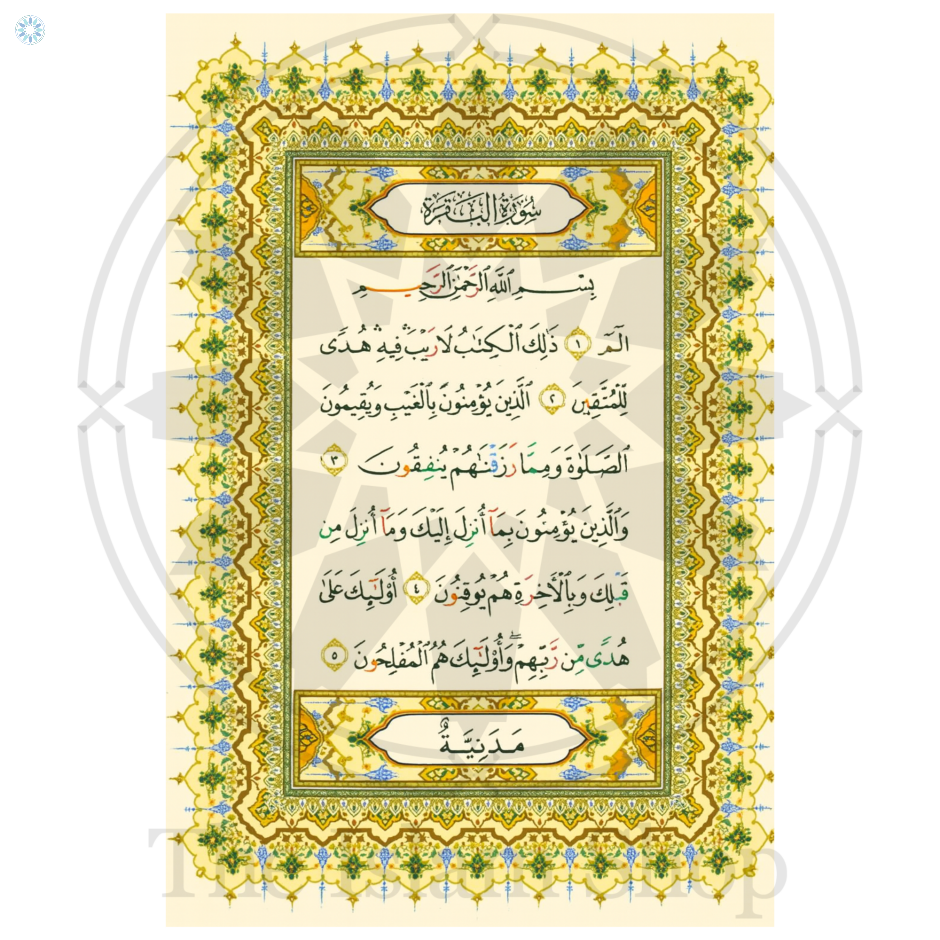 سُورَةُ الْبَقَرَةِ
بِسْمِ ٱللَّهِ ٱلرَّحْمَٰنِ ٱلرَّحِيمِ
الٓمٓ ١ ذَٰلِكَ ٱلْكِتَٰبُ لَا رَيْبَ ۛ فِيهِ ۛ هُدًى
لِّلْمُتَّقِينَ ٢ ٱلَّذِينَ يُؤْمِنُونَ بِٱلْغَيْبِ وَيُقِيمُونَ
ٱلصَّلَوٰةَ وَمِمَّا رَزَقْنَٰهُمْ يُنفِقُونَ ٣
وَٱلَّذِينَ يُؤْمِنُونَ بِمَآ أُنزِلَ إِلَيْكَ وَمَآ أُنزِلَ مِن
قَبْلِكَ وَبِٱلْأَخِرَةِ هُمْ يُوقِنُونَ ٤ أُو۟لَٰٓئِكَ عَلَىٰ
هُدًى مِّن رَّبِّهِمْ ۖ وَأُو۟لَٰٓئِكَ هُمُ ٱلْمُفْلِحُونَ ٥
مَدَنِيَّةٌ
The Islam Shop